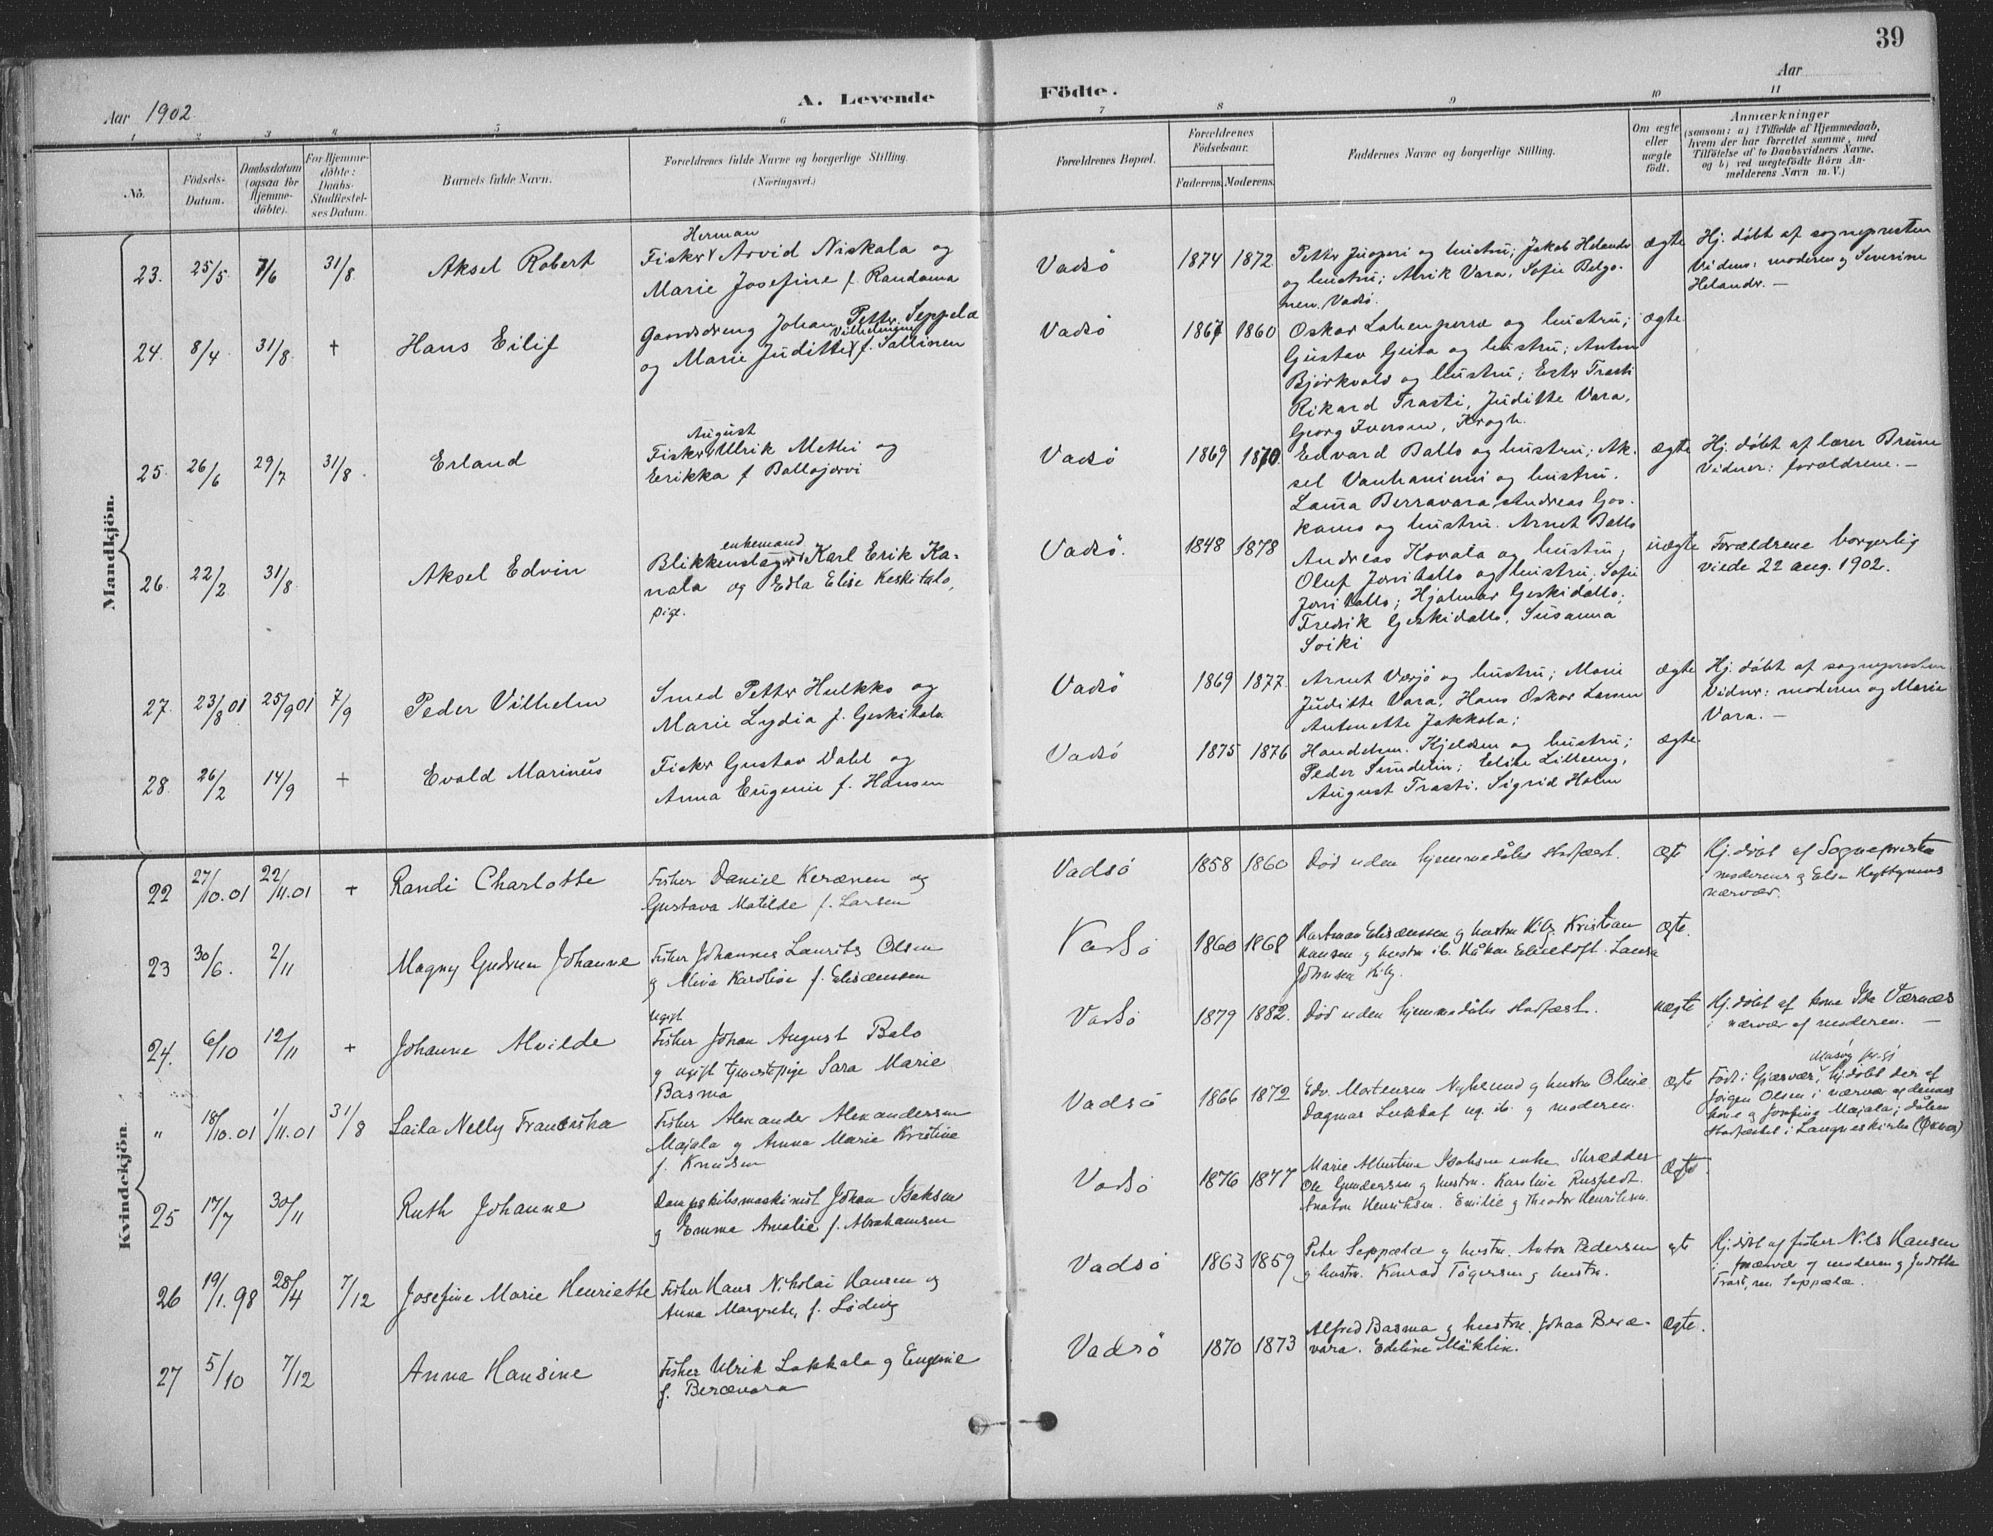 39
Aar 1902.
A. Levende Födte.
Aar
1 2 3 4 5 6 7 8 9 10 11
No.
Födsels-Datum.
Daabsdatum (ogsaa for Hjemme-döbte).
For Hjemme-döbte: Daabs-Stadfæstel-ses Datum.
Barnets fulde Navn.
Forældrenes fulde Navne og borgerlige Stilling.
(Næringsvei.)
Forældrenes Bopæl.
Forældrenes Födselsaar.
Faderens. Moderens.
Faddernes Navne og borgerlige Stilling.
Om ægte eller uægte födt.
Anmærkninger
(saasom: a) i Tilfælde af Hjemmedaab, hvem der har forrettet samme, med Tilföielse af to Daabsvidners Navne, og b) ved uægtefödte Börn An-melderens Navn m. V.)
Mandkjön.
23. 25/5 7/6 31/8 Aksel Robert
Herman
Fisker Arvid Niskala og
Marie Josefine f. Randama
Vadsö 1874 1872
og hustru; Jakob Helander
og hustru; Vara, Sofie
Vadsö.
ægte
Hj. döbt af sognepresten
Vidner: moderen og Severine
Helander. —
24. 8/4 31/8 + Hans Eilif
Gaardsdreng Johan Petter Seppelä
Vilhelmine
og Marie Juditte f. Sallinen
Vadsö 1867 1860
Oskar og hustru;
Gustav og hustru; Anton
Björkvold og hustru; Ester Trasti
Rikard Trasti, Juditte Vara,
Georg Iversen, Krogh.
ægte.
25. 26/6 29/7 31/8 Erland
August
Fisker Ulrik Metti og
Erikka f. Ballojervi
Vadsö 1869 1870
Edvard Ballo og hustru; Ak-
sel Vanhaniemi og hustru.
Laura Berravara, Andreas Gos-
kamo og hustru. Arnet Ballo
ægte
Hj. döbt af lærer Bruun
Vidner: forældrene. —
26. 22/2 31/8 Aksel Edvin
enkemand
Blikkenslager Karl Erik Ka-
nala og Edla Elise Keskitalo,
pige.
Vadsö. 1848 1878
Andreas Kovala og hustru;
Oluf Jorvitallo og hustru; Sofie
Jorvitallo; Hjalmar Geskidallo;
Fredrik Geskidallo, Susanna
Soiki
uægte
Forældrene borgerlig
viede 22 aug. 1902.
27. 23/8 01 25/9 01 7/9 Peder Vilhelm
Smed Petter Hulkko og
Marie Lydia f. Geskitalo
Vadsö 1869 1877.
Arnet og hustru; Marie
Juditte Vara, Hans Oskar Larsen
Antonette Jakkola;
ægte
Hj. döbt af sognepresten
Vidner: moderen og Marie
Vara. —
28. 26/2 14/9 + Evald Marinus
Fisker Gustav Dahl og
Anna Eugenie f. Hansen
Vadsö 1875 1876
Handelsm. Kjeldsen og hustru;
Peder Sundelin; Eline Lilleeng,
August Trasti, Sigrid Holm
ægte.
Kvindekjön.
22 27/10.01 22/11.01 + Randi Charlotte
Fisker Daniel Keränen og
Gustava Matilde f. Larsen
Vadsö 1858 1860
Död uden hjemmedåbs stadfæst.
ægte
Hj. döbt af Sognepresten
i moderens og Elsa
nærvær.
23 30/6. 2/11 Magny Gudrun Johanne
Fisker Johannes Laurits Olsen
og Karoline f. Elisæussen
Vadsö 1860 1868
Hartman Elisæussen og hustru Kristian
Hansen og hustru ib. Håkon Laura
Johnsen
ægte.
24. 6/10 12/11 + Johanne Alvilde
ugift
Fisker Johan August Balo
og ugift tjenestepige Sara Marie
Basma
Vadsö 1879 1882.
Död uden hjemmedåbs stadfæst.
uægte
Hj. döbt af kone Ida Værnæs
i nærvær af moderen. —
" 18/10.01 1/11.01 31/8 Laila Nelly Franciska
Fisker Alexander Alexandersen
Majala og Anna Marie Kristine
f. Knudsen
Vadsö 1866 1872
Edv. Mortensen Nyksund og hustru Oline
Dagmar ug. ib. og moderen.
ægte
Måsöy
Född i Gjæsvær, hj. döbt der af
Jörgen Olsen i nærvær af dennes
kone og Josefine Majala; dåben
stadfæstet i kirke
25 17/7 30/11 Ruth Johanne
Dampskibsmaskinist Johan Isaksen
og Emma Amalie f. Abrahamsen
Vadsö 1876 1877
Marie Albertine Isaksen enke. Skrædder
Ole Gundersen og hustru. Karoline
Anton Henriksen. Emilie og Theodor Henriksen.
ægte
26 19/1.98 28/4 7/12 Josefine Marie Henriette
Fisker Hans Nikolai Hansen og
Anna Margrete, f. Lödvig
Vadsö 1863 1859
Peter Seppälä og hustru. Anton Pedersen
og hustru. Konrad Tögersen og hustru.
ægte
Hj. döbt af fisker Nils Hansen
i nærvær af moderen og Judithe
Trasti, Seppälä.
27 5/10 7/12 Anna Hansine
Fisker Ulrik Lakkala og Eugenie
f. Berævara
Vadsö 1870 1873
Alfred Basma og hustru. Johan Beræ-
vara. Edeline Mäklin.
ægte.